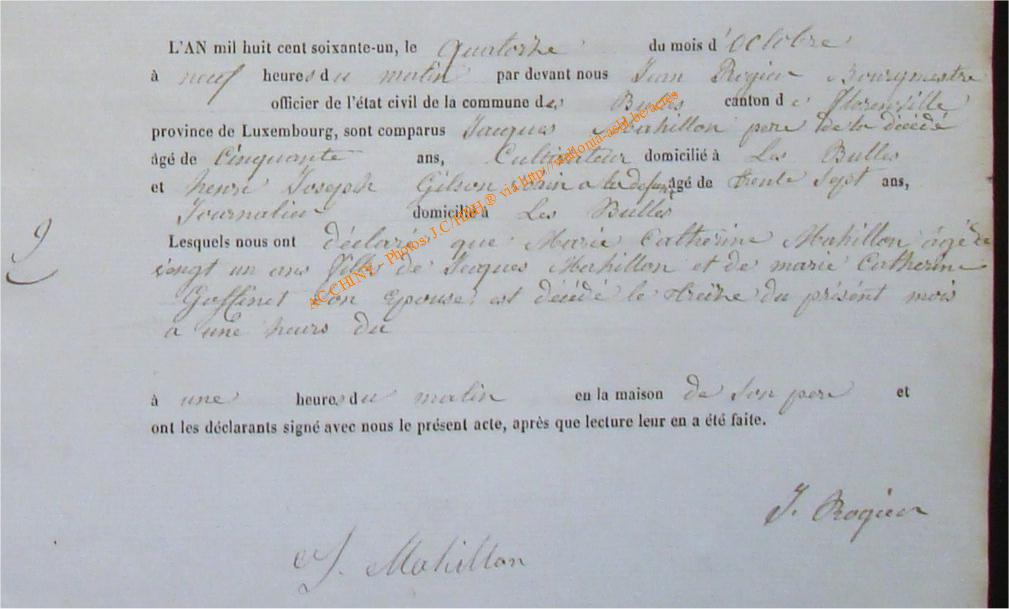 L'AN mil huit cent soixante-un, le quatorze du mois d'Octobre
à neuf heures du matin par devant nous Jean Rogier Bourgmestre
officier de l'état civil de la commune des Bulles canton de Florenville
province de Luxembourg, sont comparus Jacques Mahillon pere de la décédé
âgé de Cinquante ans, Cultivateur domicilié à Les Bulles
et henri Joseph Gilson a la âgé de trente Sept ans,
Journalier domicilié à Les Bulles
Lesquels nous ont déclaré que Marie Catherine Mahillon âgé de
vingt un ans fille de Jacques Mahillon et de marie Catherine
Goffinet Son Epouse est décédé le treize du présent mois
a une heurs du
à une heures du matin en la maison de Son pere et
ont les déclarants signé avec nous le présent acte, après que lecture leur en a été faite.
J. Rogier
J. Mahillon
9
ACCHINZ - Photos J.C/HBH ® via http://wallonia-asbl.be/actes